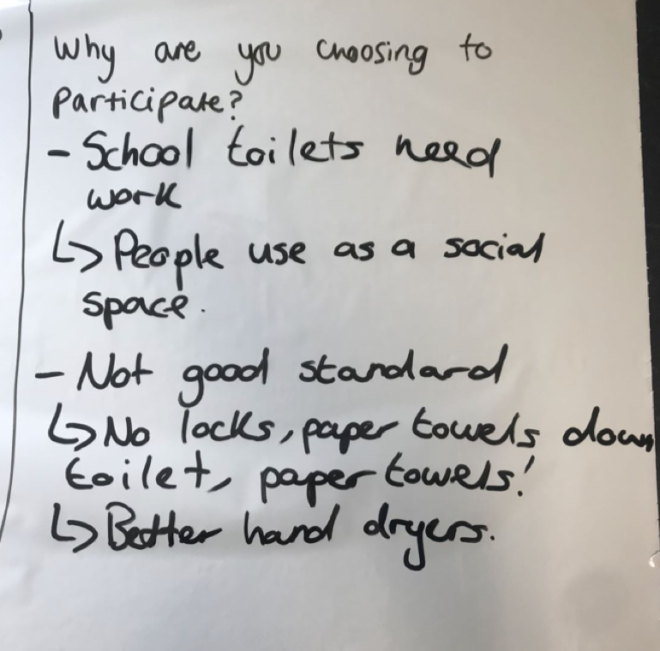 Why are you choosing to
participate?
- School toilets need
work
↳ People use as a social
space.
- Not good standard
↳ No locks, paper towels down
toilet, paper towels!
↳ Better hand dryers.